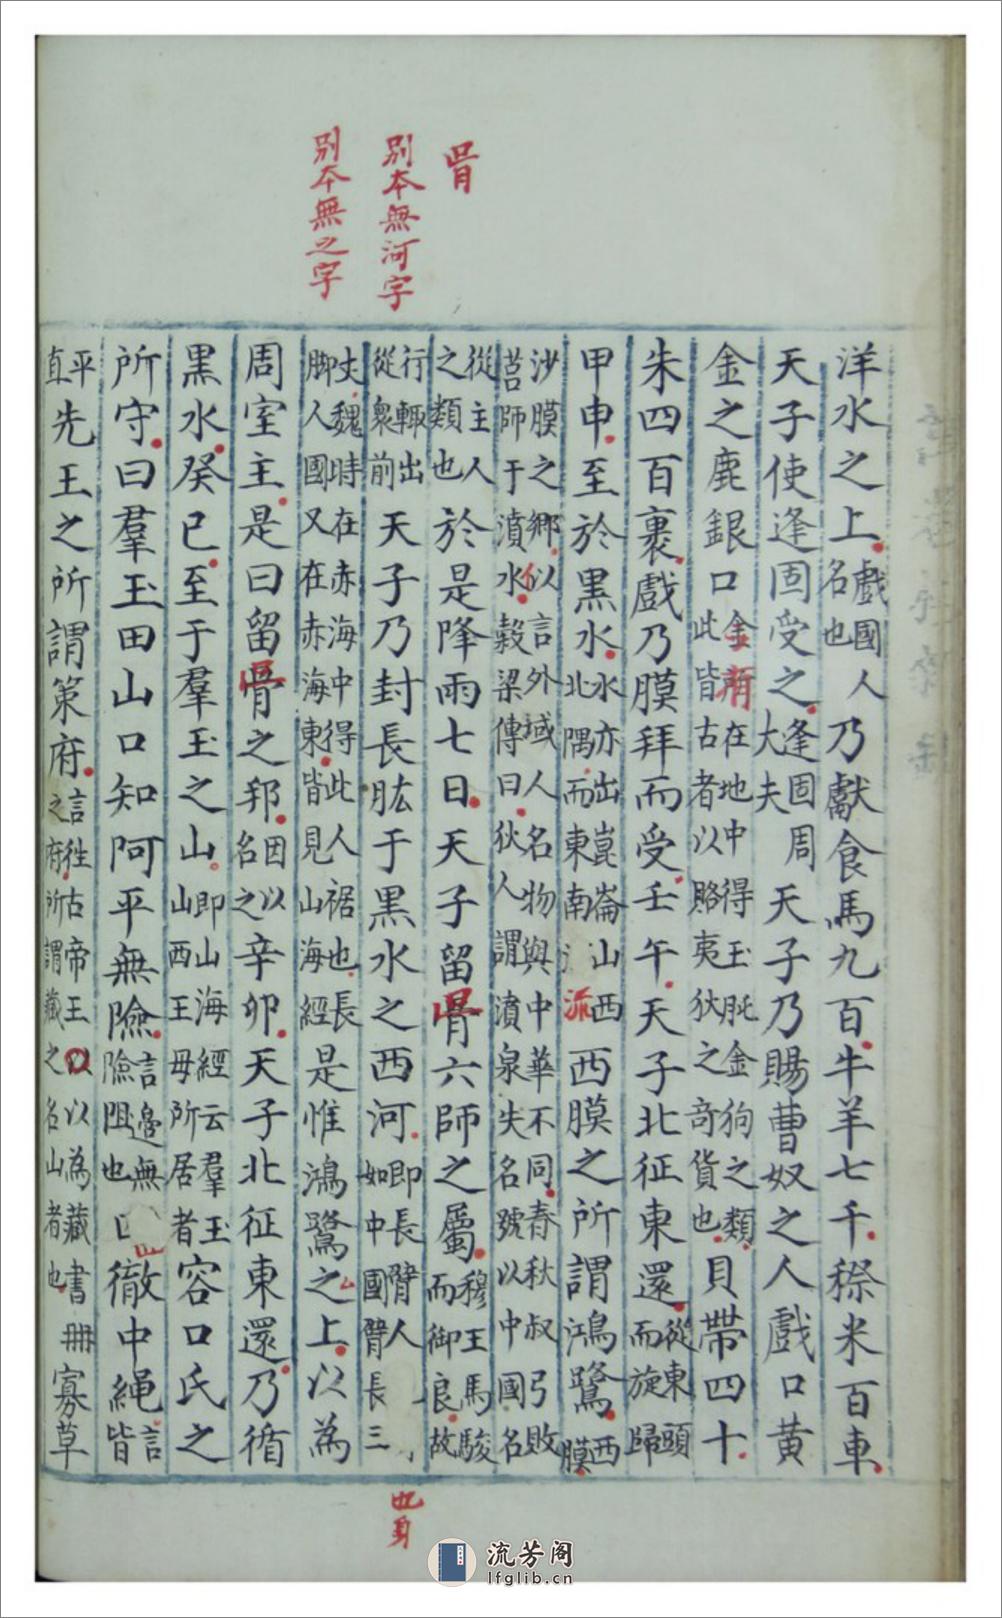 𩨭
別本無河字
別本無之字
洋水之上戲國人名也乃獻食馬九百牛羊七千穄米百車
天子使逢固受之逢固周大夫天子乃賜曹奴之人戲口黃
金之鹿銀口金在地中得玉肫金狗之類此皆古者以賂夷狄之奇貨也貝帶四十
朱四百裹戲乃膜拜而受壬午天子北征東還從東頭而旋歸
甲申至於黑水水亦出崑崙山西北隅而東南流西膜之所謂鴻鷺西膜
沙膜之鄉以言外域人名物與中華不同春秋叔弓敗莒師于濆水糓梁傳曰狄人謂濆泉失名號以中國名
從主人之類也於是降雨七日天子留骨六師之屬穆王馬駿而御良故
行輙出從衆前天子乃封長肱于黑水之西河即長臂人如中國臂長三
丈魏時在赤海中得此人裾也長脚人國又在赤海東皆見山海經是惟鴻鷺之上以為
周室主是曰留骨之邦因以名之辛卯天子北征東還乃循
黑水癸巳至于羣玉之山即山海經云羣玉山西王母所居者容口氏之
所守曰羣玉田山口知阿平無險言邊無險阻也口徹中繩皆言
平直先王之所謂策府言徃古帝王以為藏書冊之府所謂藏之名山者也寡草
也身
流芳阁
lfglib.cn